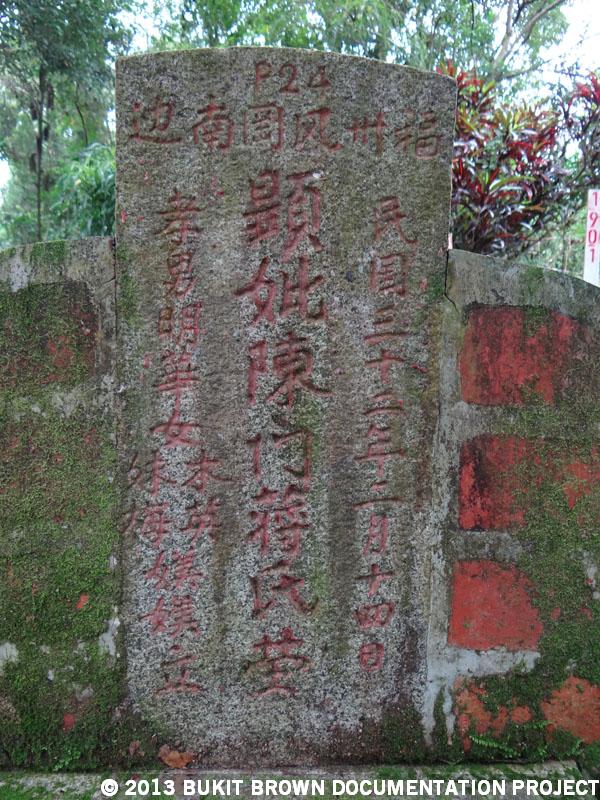 P24
福州风岡南
民國三十二年二月十四日
顯妣陳門蔣氏塋
孝男明華女英妹梅立
1901
© 2013 BUKIT BROWN DOCUMENTATION PROJECT